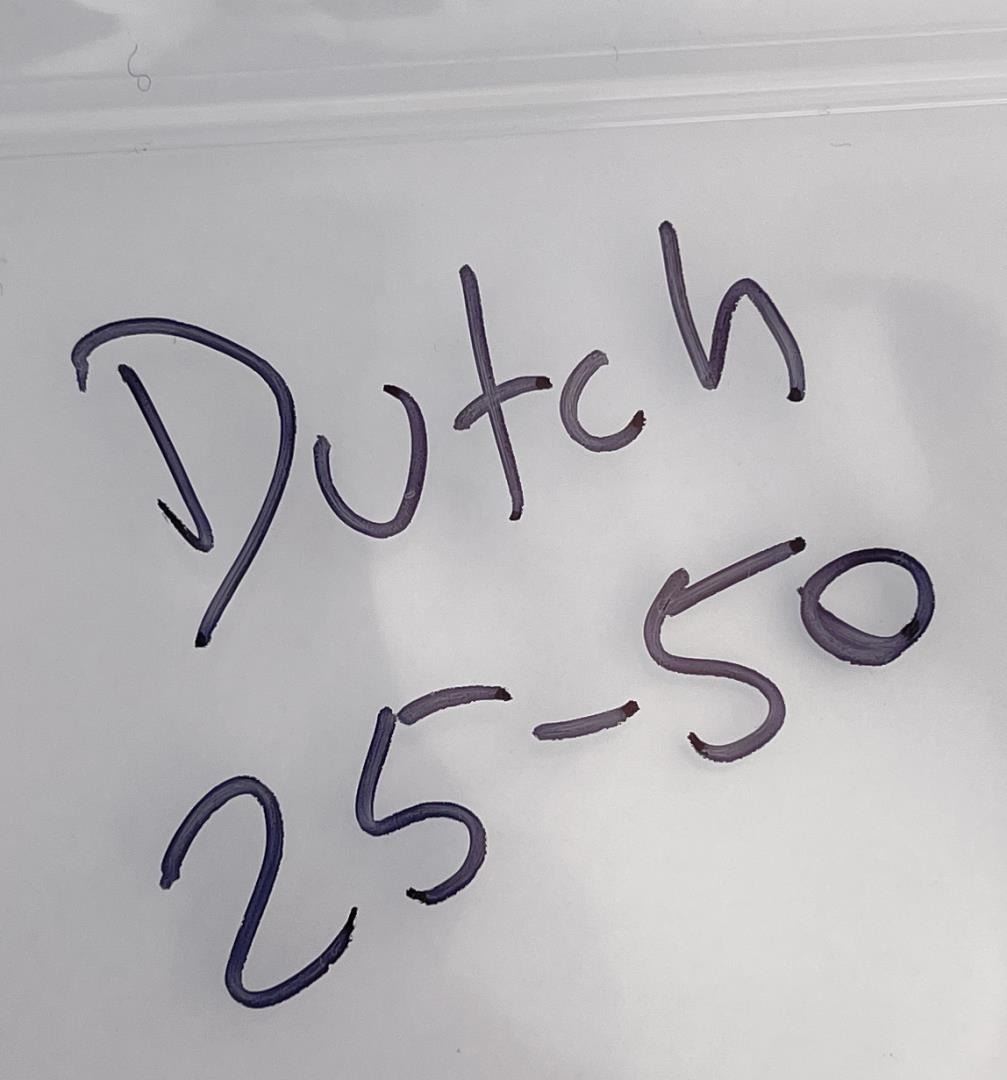 Dutch
25-50